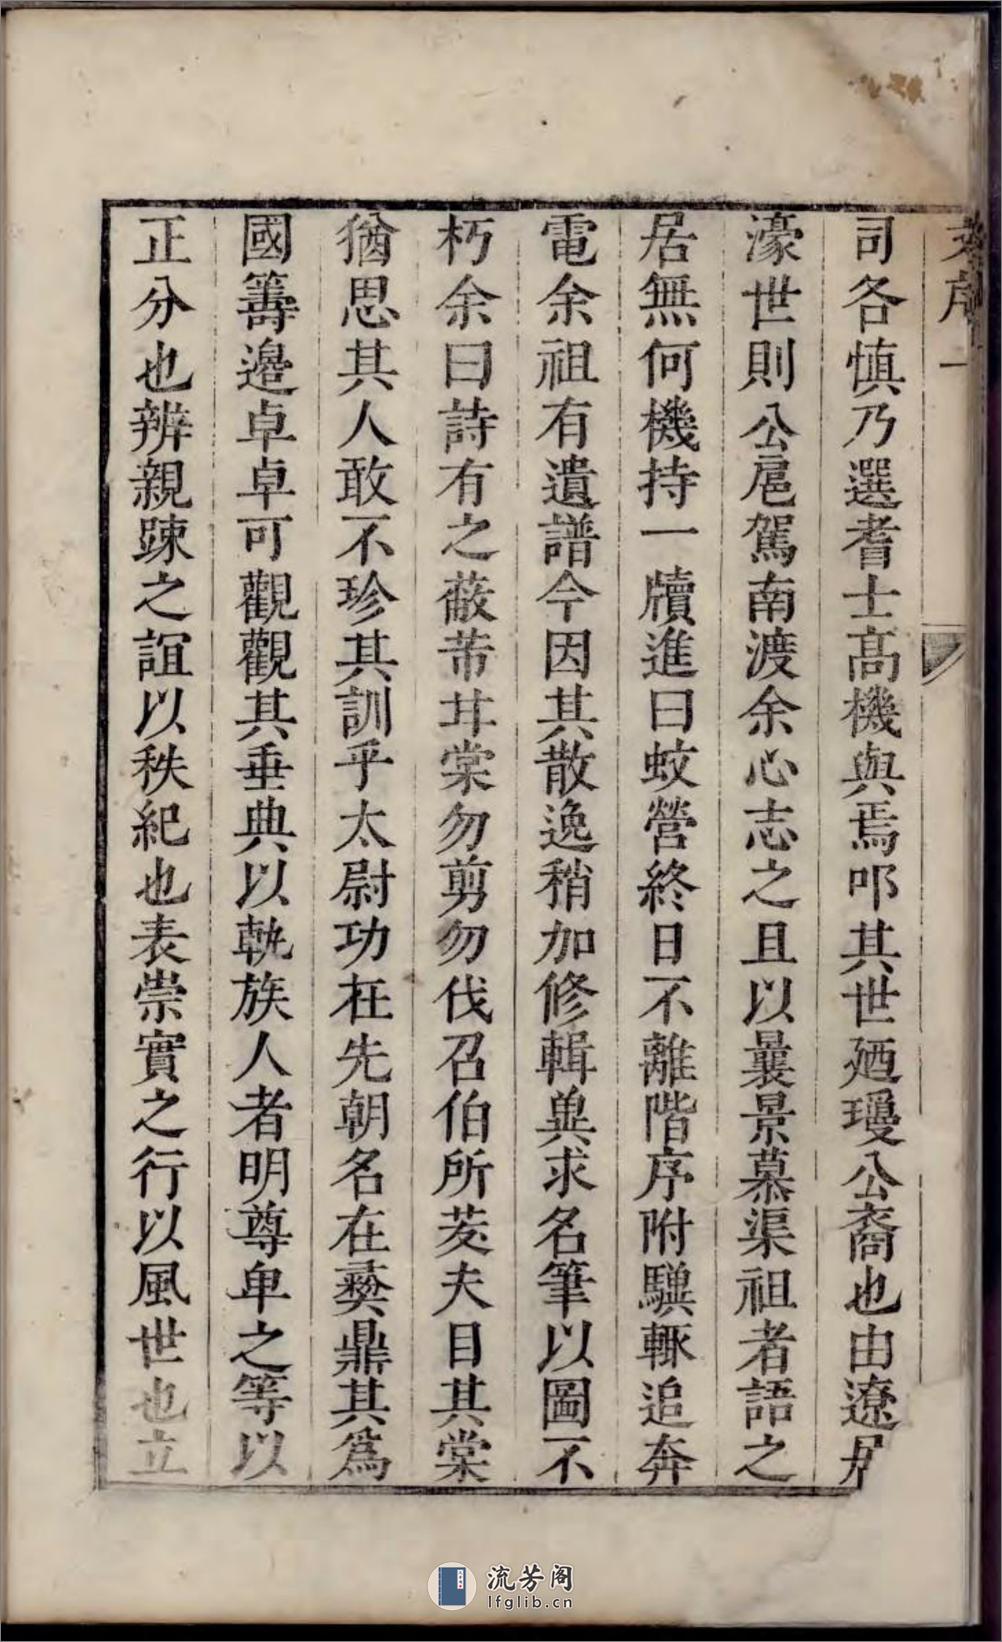 序一
司各慎乃選耆士高機與焉叩其世廼瓊公裔也由遼居
濠世則公扈駕南渡余心志之且以曩景慕渠祖者語之
居無何機持一牘進曰蚊營終日不離階序附驥轍追奔
電余祖有遺譜今因其散逸稍加修輯兾求名筆以圖不
朽余曰詩有之蔽芾甘棠勿剪勿伐召伯所茇夫目其棠
猶思其人敢不珍其訓乎太尉功在先朝名在彜鼎其為
國籌邊卓卓可觀觀其垂典以軌族人者明尊卑之等以
正分也辨親踈之誼以秩紀也表崇實之行以風世也立
流芳阁
lfglib.cn